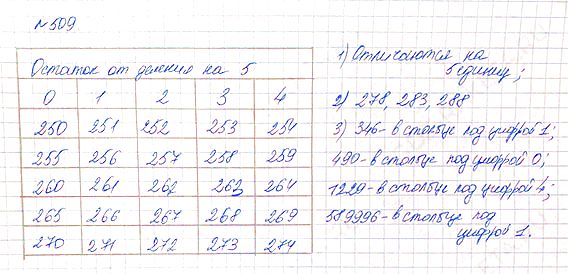 №509
Остаток от деления на 5
0 1 2 3 4
250 251 252 253 254
255 256 257 258 259
260 261 262 263 264
265 266 267 268 269
270 271 272 273 274
1) Отличаются на
5 единиц;
2) 278, 283, 288
3) 346 - в столбце под цифрой 1;
490 - в столбце под цифрой 0;
1229 - в столбце под цифрой 4;
589996 - в столбце под
цифрой 1.